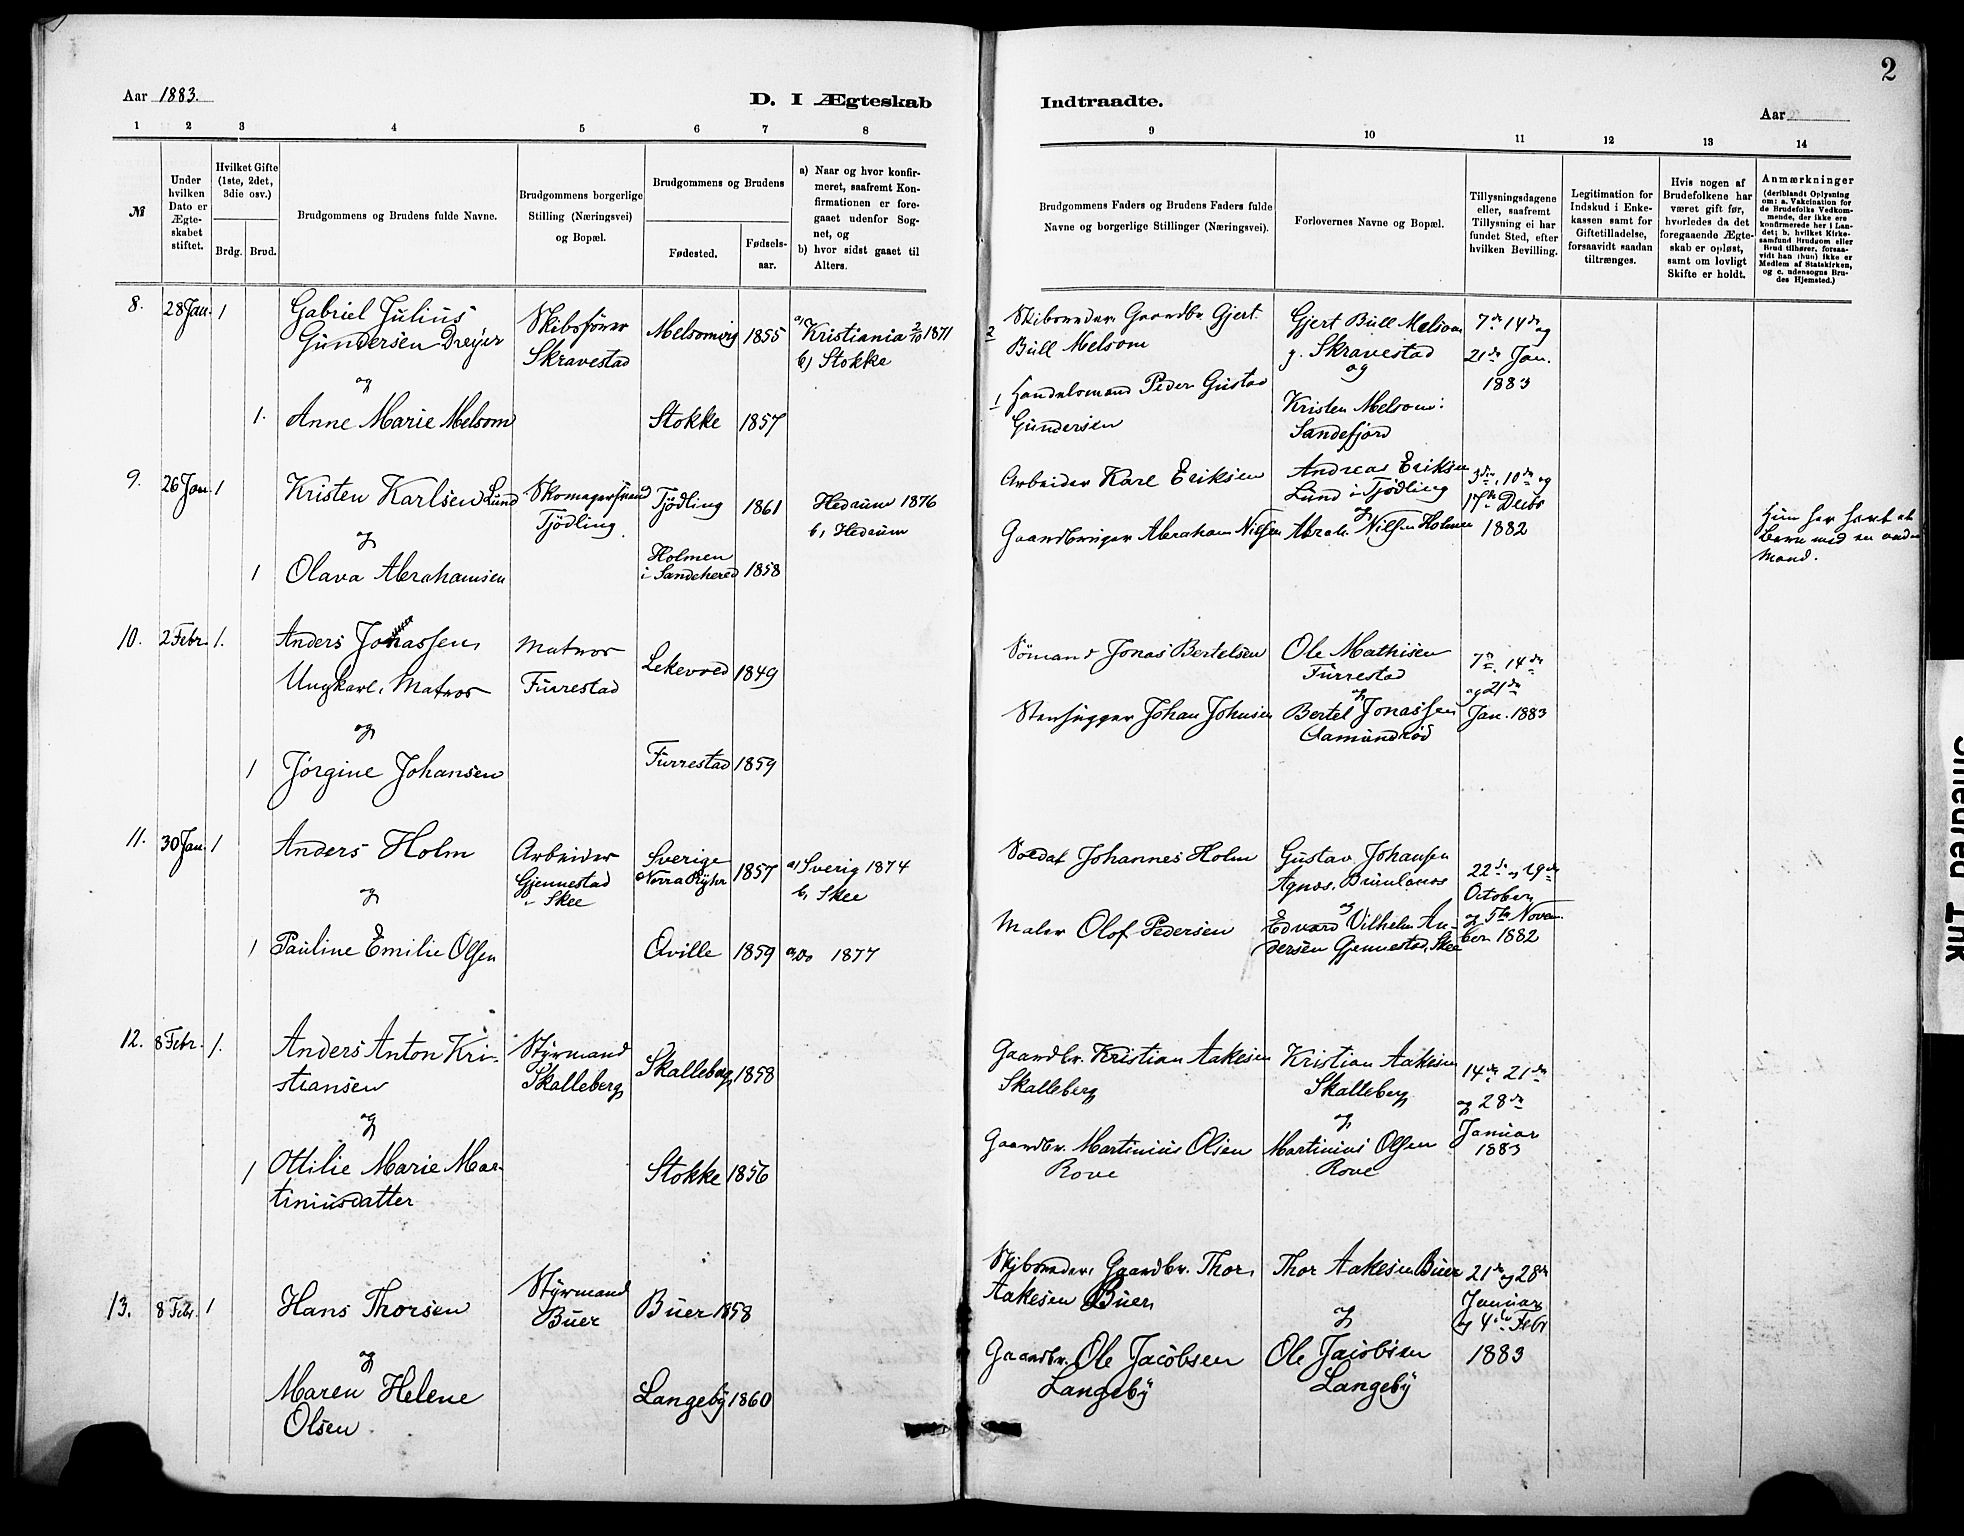 2
Aar 1883.
D. I Ægteskab
Indtraadte.
Aar
1 2 3 4 5 6 7 8
9 10 11 12 13 14
№
Under hvilken Dato er Ægteskabet stiftet.
Hvilket Gifte (1ste, 2det, 3die osv.)
Brdg. Brud.
Brudgommens og Brudens fulde Navne.
Brudgommens borgerlige Stilling (Næringsvei) og Bopæl.
Brudgommens og Brudens
Fødested.
Fødselsaar.
a) Naar og hvor konfirmeret, saafremt Konfirmationen er foregaaet udenfor Sognet, og
b) hvor sidst gaaet til Alters.
Brudgommens Faders og Brudens Faders fulde Navne og borgerlige Stillinger (Næringsvei).
Forlovernes Navne og Bopæl.
Tillysningsdagene eller, saafremt Tillysning ei har fundet Sted, efter hvilken Bevilling.
Legitimation for Indskud i Enkekassen samt for Giftetilladelse, forsaavidt saadan tiltrænges.
Hvis nogen af Brudefolkene har været gift før, hvorledes da det foregaaende Ægteskab er opløst, samt om lovligt Skifte er holdt.
Anmærkninger
(deriblandt Oplysning om: a. Vakcination for de Brudefolks Vedkommende, der ikke ere konfirmerede her i Landet; b. hvilket Kirkesamfund Brudgom eller Brud tilhører, forsaavidt han (hun) ikke er Medlem af Statskirken, og c. udensogns Brudes Hjemsted.)
8. 28 Jan. 1
Gabriel Julius
Gundersen Dreyer
og
1. Anne Marie Melsom
Skibsfører
Skravestad
Melsomvig 1855
Stokke 1857
a) Kristiania 2/10 1871
b) Stokke
2 Skibsreder. Gaardbr. Gjert
Bull Melsom
1 Handelsmand Peder Gustav
Gundersen
Gjert Bull Melsom
Skravestad
og
Kristen Melsom:
Sandefjord
7de 14de og
21de Jan.
1883
9. 26 Jan. 1
Kristen Karlsen Lund
og
1 Olava Abrahamsen
Skomagersvend
Tjödling
Tjödling 1861
Holmen
i Sandehered 1858
Hedrum 1876
b, Hedrum
Arbeider Karl Eriksen
Gaardbruger Abraham Nilsen
Andreas Eriksen
Lund i Tjödling
og
Abrah. Nilsen Holmen
3die, 10de og
17de Decbr
1882
Hun har havt et
Barn med en anden
Mand.
10. 2 Febr. 1.
Anders Jonassen
Ungkarl, Matros
og
1 Jörgine Johansen
Matros
Furrestad
Lekevod 1849
Furrestad 1859
Sömand Jonas Bertelsen
Stenhugger Johan Johnsen
Ole Mathisen
Furrestad
og
Bertel Jonassen
Aamundröd
7de 14de
og 21de
Jan. 1883
11. 30 Jan. 1
Anders Holm
og
1 Pauline Emilie Olsen
Arbeider
Gjennestad
i Skee
Sverige
Norra Ryhr 1857
Qville 1859
a) Sverig 1874
b, Skee
a, Do 1877
Soldat Johannes Holm
Maler Olof Pedersen
Gustav Johansen
Agnes, Brunlanes
og
Edvard Vilhelm Andersen
Gjennestad, Skee
22de og 29de
October
og 5te Novem-
ber 1882
12. 8 Febr. 1.
Anders Anton Kri-
stiansen
og
1 Ottilie Marie Mar-
tiniusdatter
Styrmand
Skalleberg
Skalleberg 1858
Stokke 1856
Gaardbr. Kristian Aakesen
Skalleberg
Gaardbr. Martinius Olsen
Rove
Kristian Aakesen
Skalleberg
og
Martinius Olsen
Rove
14de 21de
og 28de
Januar
1883
13. 8 Febr. 1
Hans Thorsen
og
Maren Helene
Olsen
Styrmand
Buer
Buer 1858
Langeby 1860
Skibsreder, Gaardbr. Thor
Aakesen Buer
Gaardbr. Ole Jacobsen
Langeby
Thor Aakesen Buer
og
Ole Jacobsen
Langeby
21de og 28de
Januar
og 4de Febr
1883